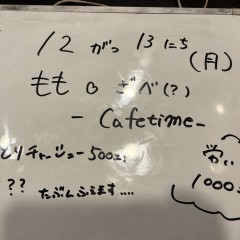 12がつ13にち(月)
ももの ざべ(?)
- Cafetime -
とりチャーシュー500
??
たぶんふえます....
1000